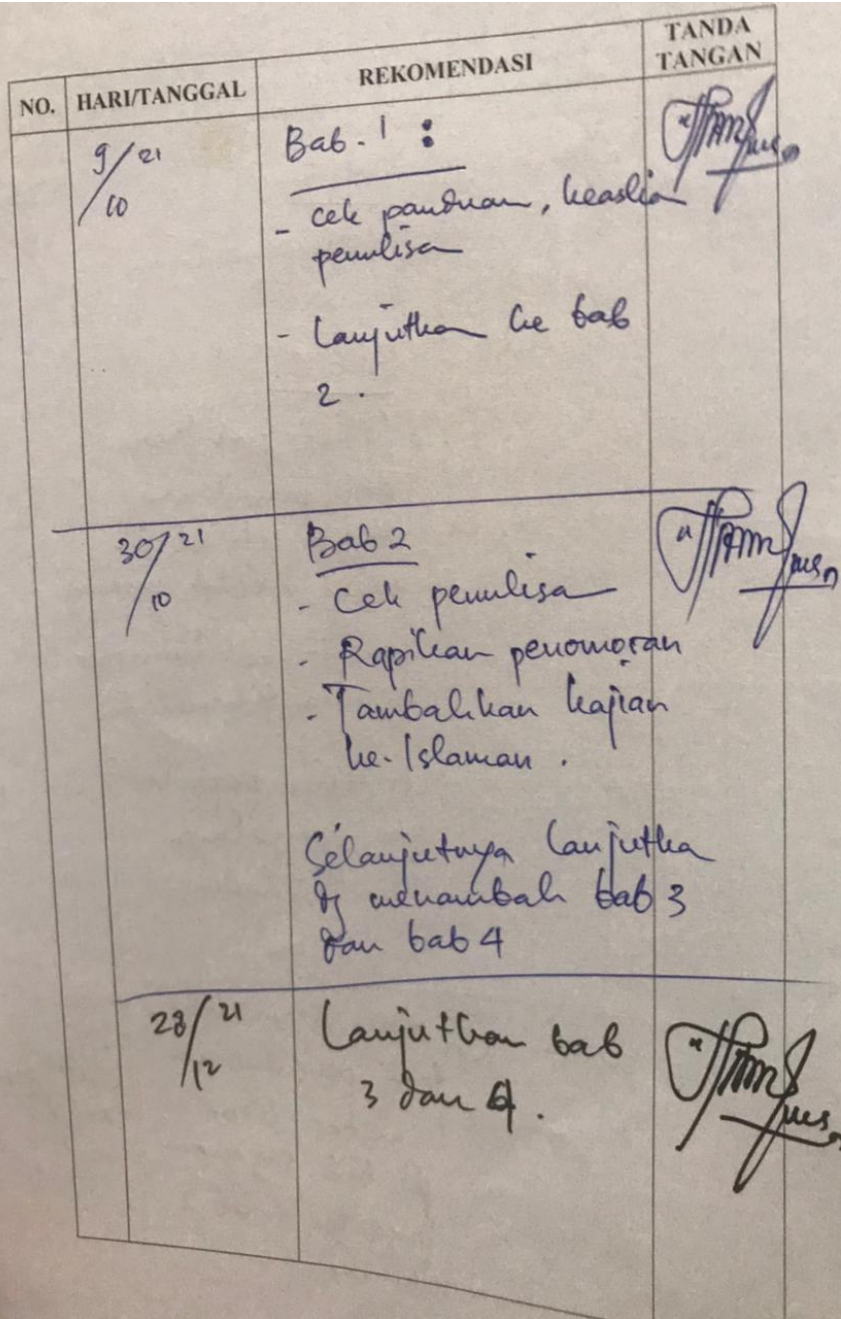 NO. HARI/TANGGAL REKOMENDASI TANDA TANGAN
9/10 21
Bab. 1 :
- cek panduan, keaslian
penulisa
- Lanjutkan ke bab
2.
30/10 21
Bab 2
- Cek penulisa
- Rapikan penomoran
- Tambahkan kajian
ke-Islaman.
Selanjutnya lanjutka
dg menambah bab 3
dan bab 4
28/12 21
Lanjutkan bab
3 dan 4.